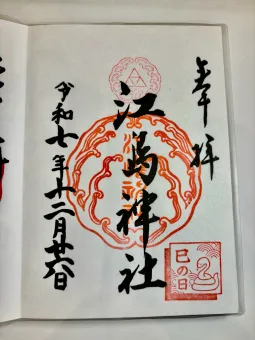 奉拝
江島神社
令和七年十二月廿六日
巳の日